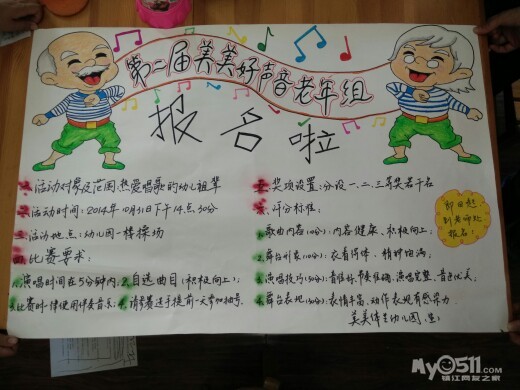 第二届美美好声音老年组
报名啦
一、活动对象及范围:热爱唱歌的幼儿祖辈
二、活动时间:2014年10月31日下午14点30分
三、活动地点:幼儿园一楼操场
四、比赛要求:
1、演唱时间在5分钟内、2、自选曲目(积极向上)、
3、比赛时一律使用伴奏音乐、4、请参赛选手提前一天参加抽号。
五、奖项设置:分设一、二、三等奖若干名
六、评分标准:
1、歌曲内容(10分):内容健康、积极向上;
2、舞台形象(10分):衣着得体、精神饱满;
3、演唱技巧(50分):音准好、节奏准确、演唱完整、音色优美;
4、舞台表现(30分):表情丰富、动作表现有感染力
即日起
到老师处
报名!
美美体艺幼儿园
My0511.com
镇江网友之家